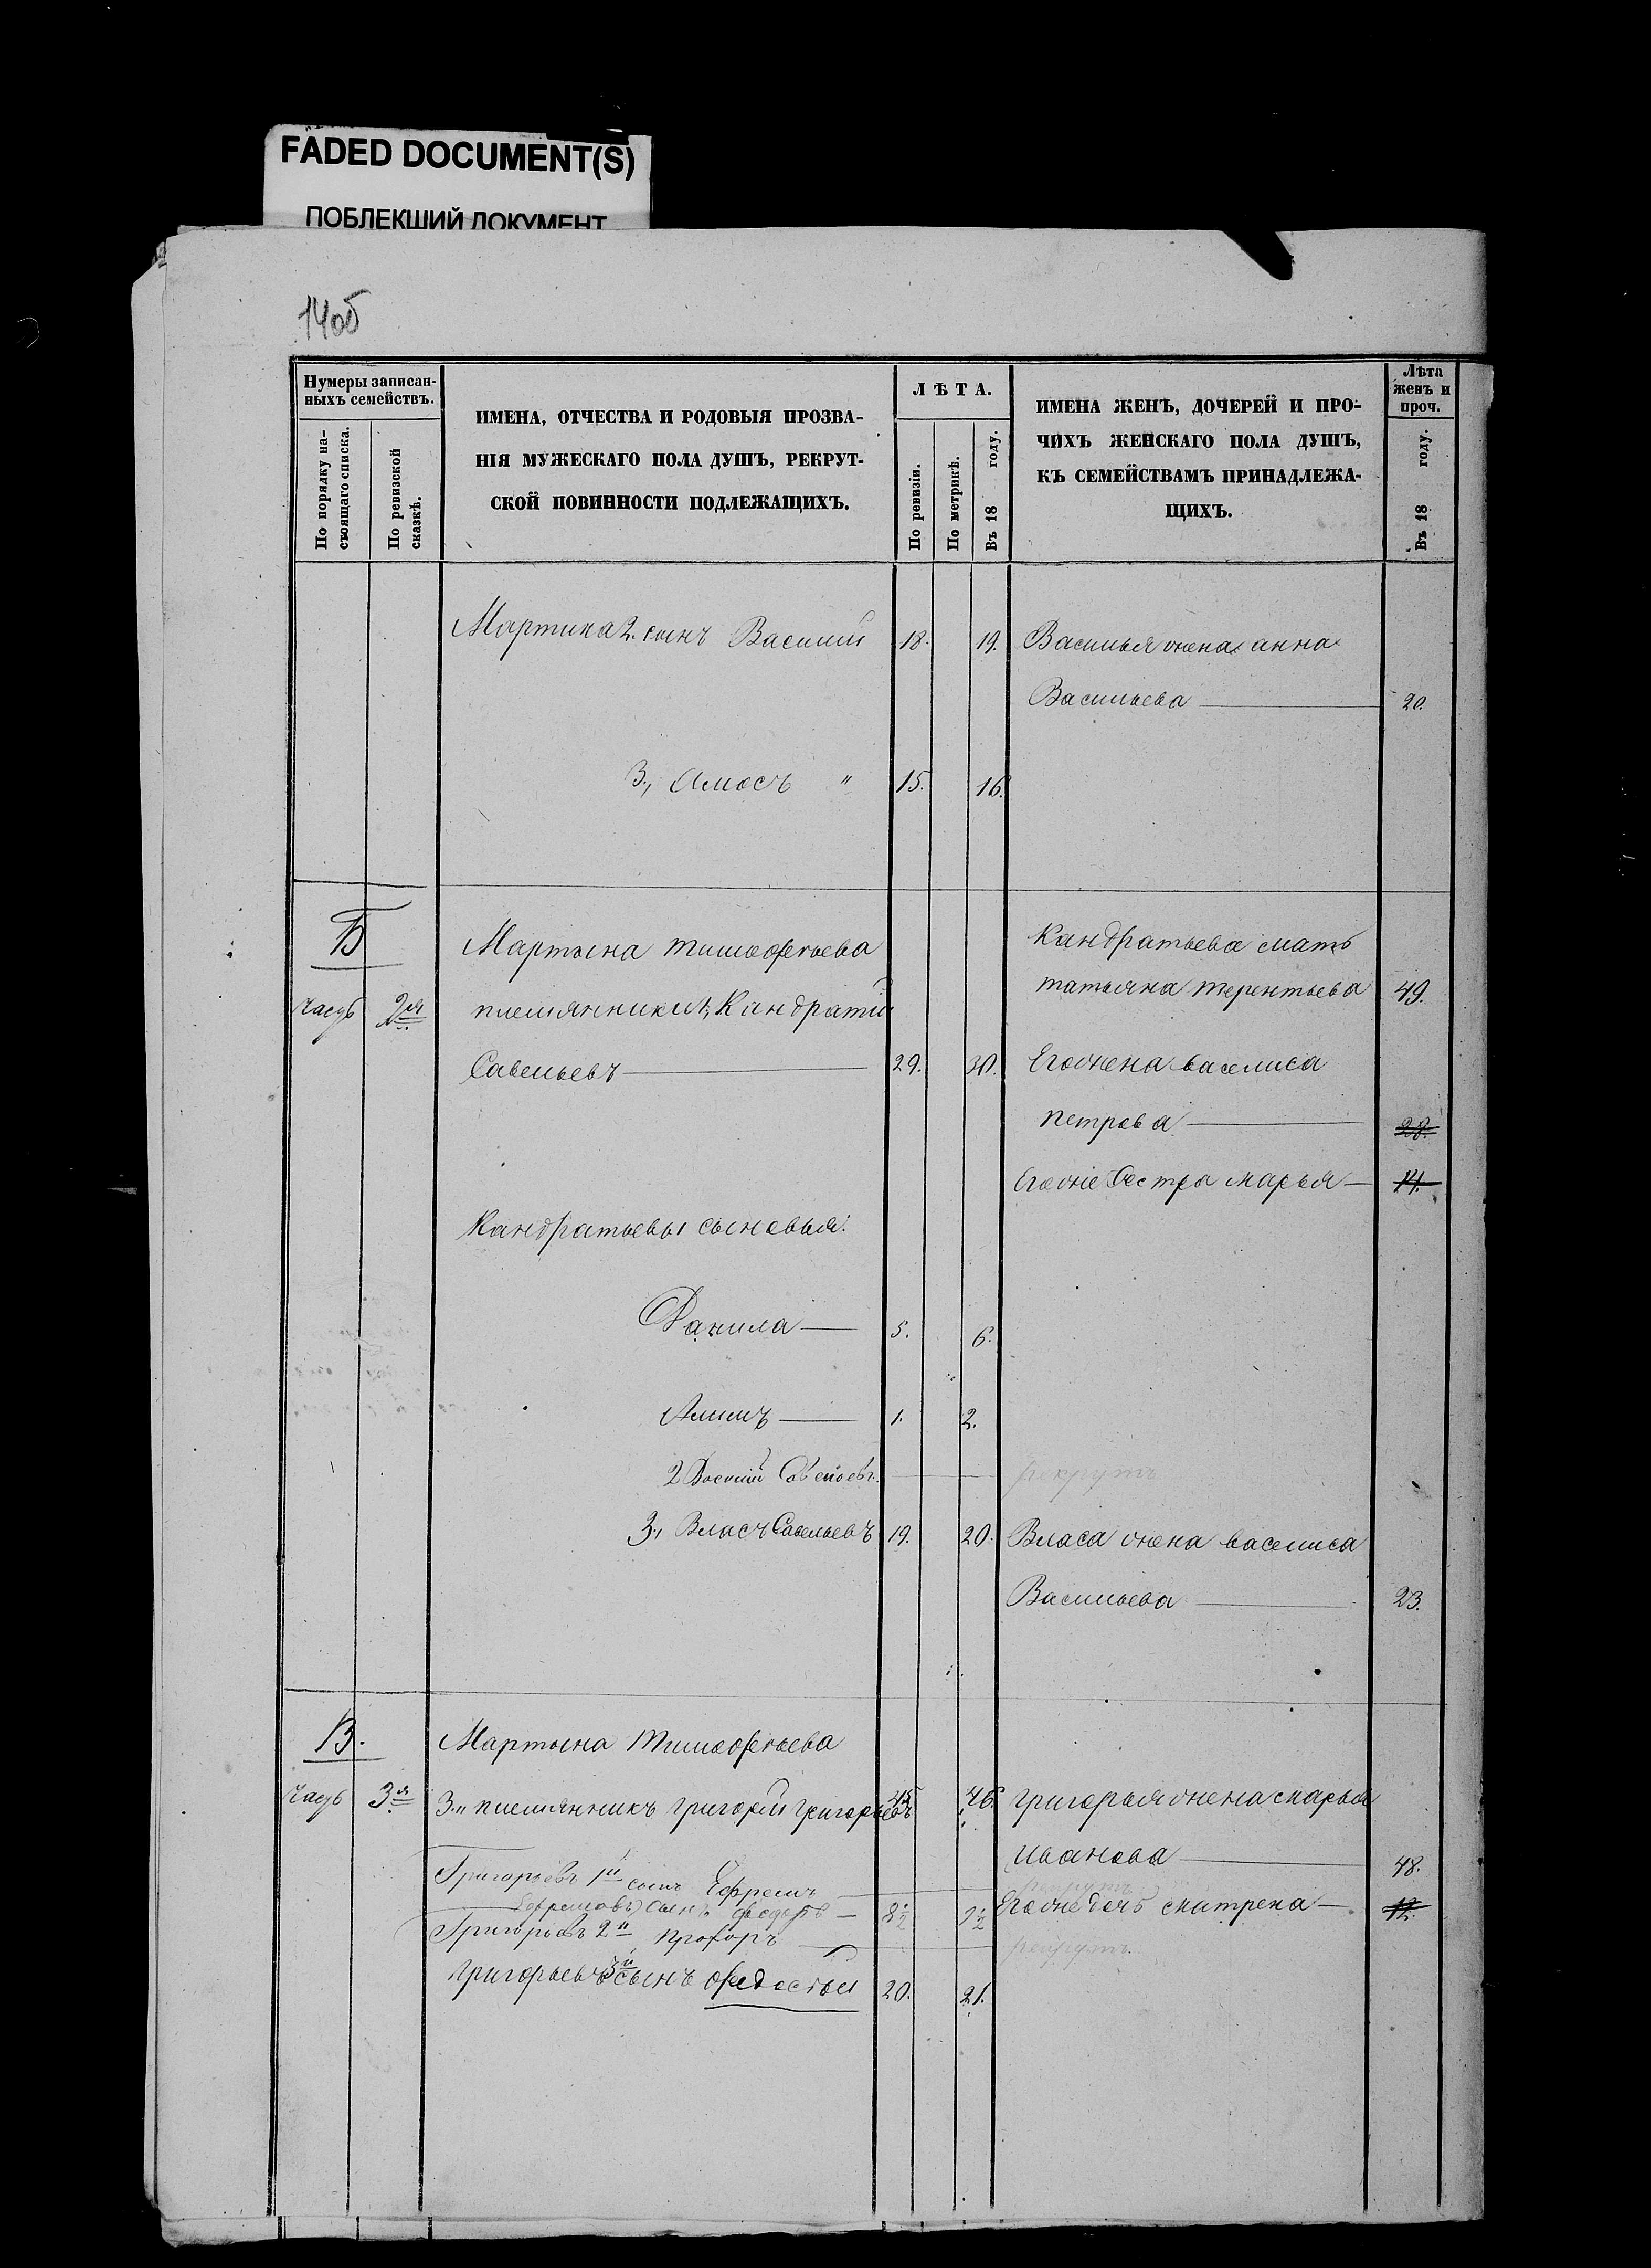 FADED DOCUMENT(S)
ПОБЛЕКШИЙ ДОКУМЕНТ
14об
Нумеры записан-
ныхъ семействъ.
По порядку на-
стоящаго списка.
По ревизской
сказкѣ.
ИМЕНА, ОТЧЕСТВА И РОДОВЫЯ ПРОЗВА-
НІЯ МУЖЕСКАГО ПОЛА ДУШЪ, РЕКРУТ-
СКОЙ ПОВИННОСТИ ПОДЛЕЖАЩИХЪ.
ЛѢТА.
По ревизіи.
По метрикѣ.
Въ 18 году.
ИМЕНА ЖЕНЪ, ДОЧЕРЕЙ И ПРО-
ЧИХЪ ЖЕНСКАГО ПОЛА ДУШЪ,
КЪ СЕМЕЙСТВАМЪ ПРИНАДЛЕЖА-
ЩИХЪ.
Лѣта
женъ и
проч.
Въ 18 году.
Мартина 2. сынъ Василий 18. 19. Василья жена анна
Васильева 20.
3., Амосъ " 15. 16.
Б Мартына тимофеева Кандратьева мать
татьяна терентьева 49.
часть 2я племянники 1, Кандратий
Савельевъ 29. 30. Егожена василиса
петрова 28.
Егоже Сестра марья 14.
Кандратьевы сыновья:
Данила 5. 6.
Алимъ 1. 2.
2 Василий Савельевъ рекрутъ
3., Власъ Савельевъ 19. 20. Власа жена василиса
Васильева 23.
В. Мартына Тимофеева
часть 3я 3,, племянникъ григорий григорьевъ 45 46. григорья жена марья
иванова 48.
Григорьевъ 1й сынъ Ефремъ рекрутъ
Ефремовъ сынъ федоръ 8½ 9½ Егоже дочь матрена 12.
Григорьевъ 2й прохоръ рекрутъ.
григорьевъ 3й сынъ федостьи 20. 21.